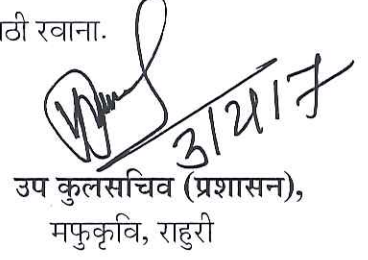 ठी रवाना.
उप कुलसचिव (प्रशासन),
मफुकृवि, राहुरी